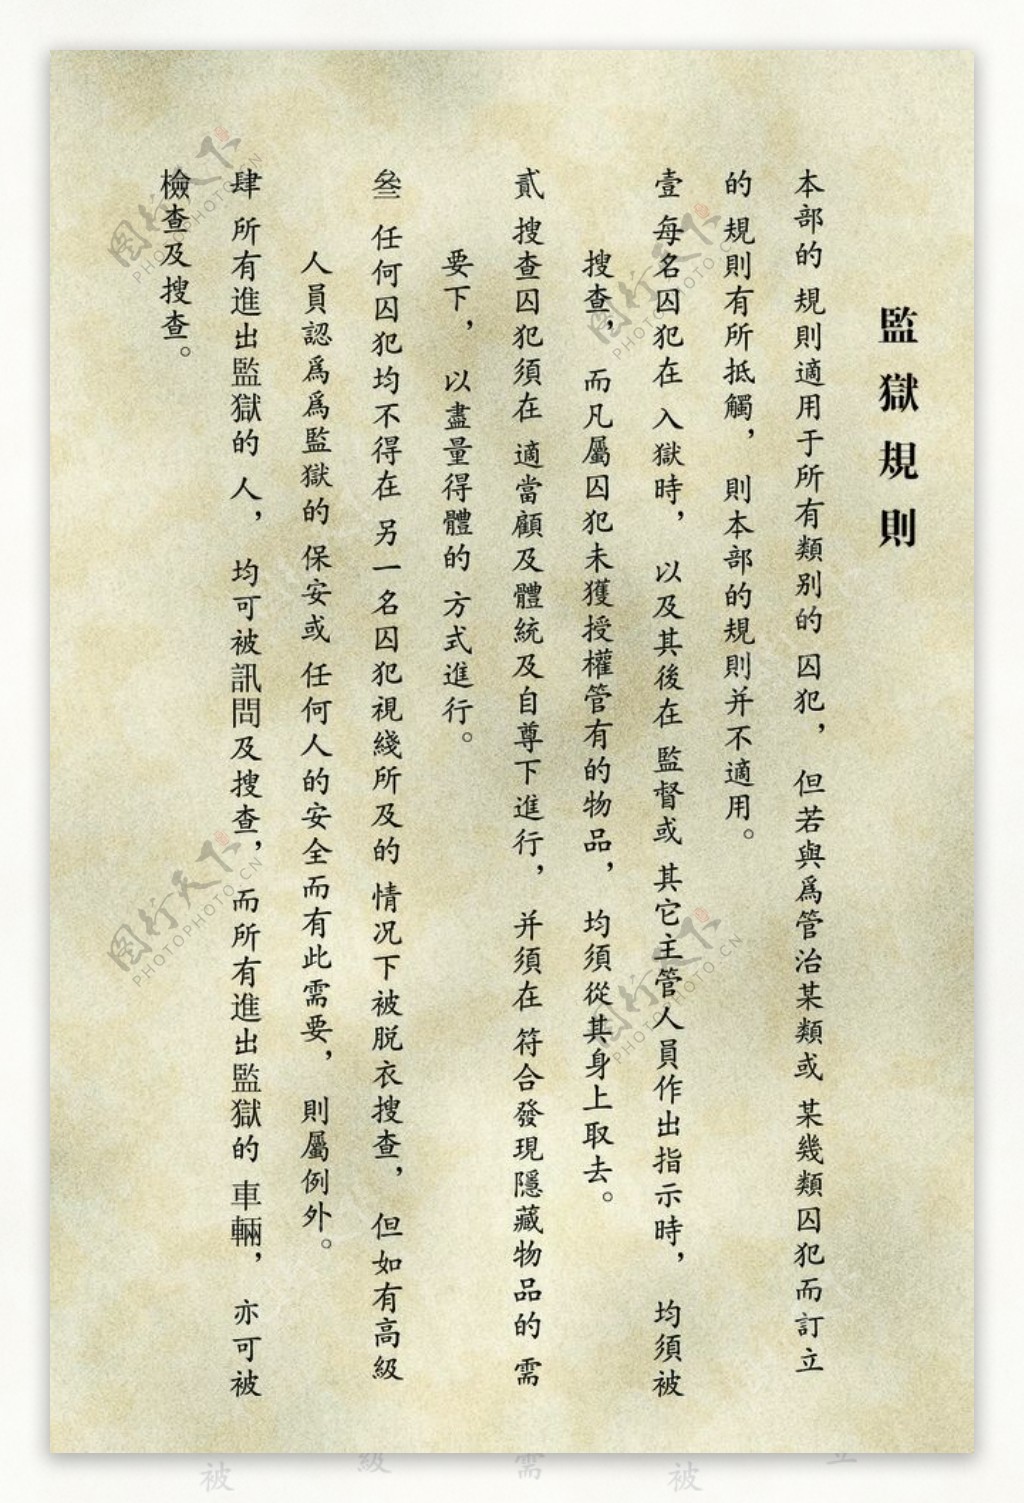 監獄規則
本部的規則適用于所有類别的囚犯，但若與爲管治某類或某幾類囚犯而訂立
的規則有所抵觸，則本部的規則并不適用。
壹 每名囚犯在入獄時，以及其後在監督或其它主管人員作出指示時，均須被
搜查，而凡屬囚犯未獲授權管有的物品，均須從其身上取去。
貳 搜查囚犯須在適當顧及體統及自尊下進行，并須在符合發現隱藏物品的需
要下，以盡量得體的方式進行。
叄 任何囚犯均不得在另一名囚犯視綫所及的情况下被脱衣搜查，但如有高級
人員認爲爲監獄的保安或任何人的安全而有此需要，則屬例外。
肆 所有進出監獄的人，均可被訊問及搜查，而所有進出監獄的車輛，亦可被
檢查及搜查。
图行天下
PHOTOPHOTO.CN
图行天下
PHOTOPHOTO.CN
图行天下
PHOTOPHOTO.CN
图行天下
PHOTOPHOTO.CN
被
級
需
被
立